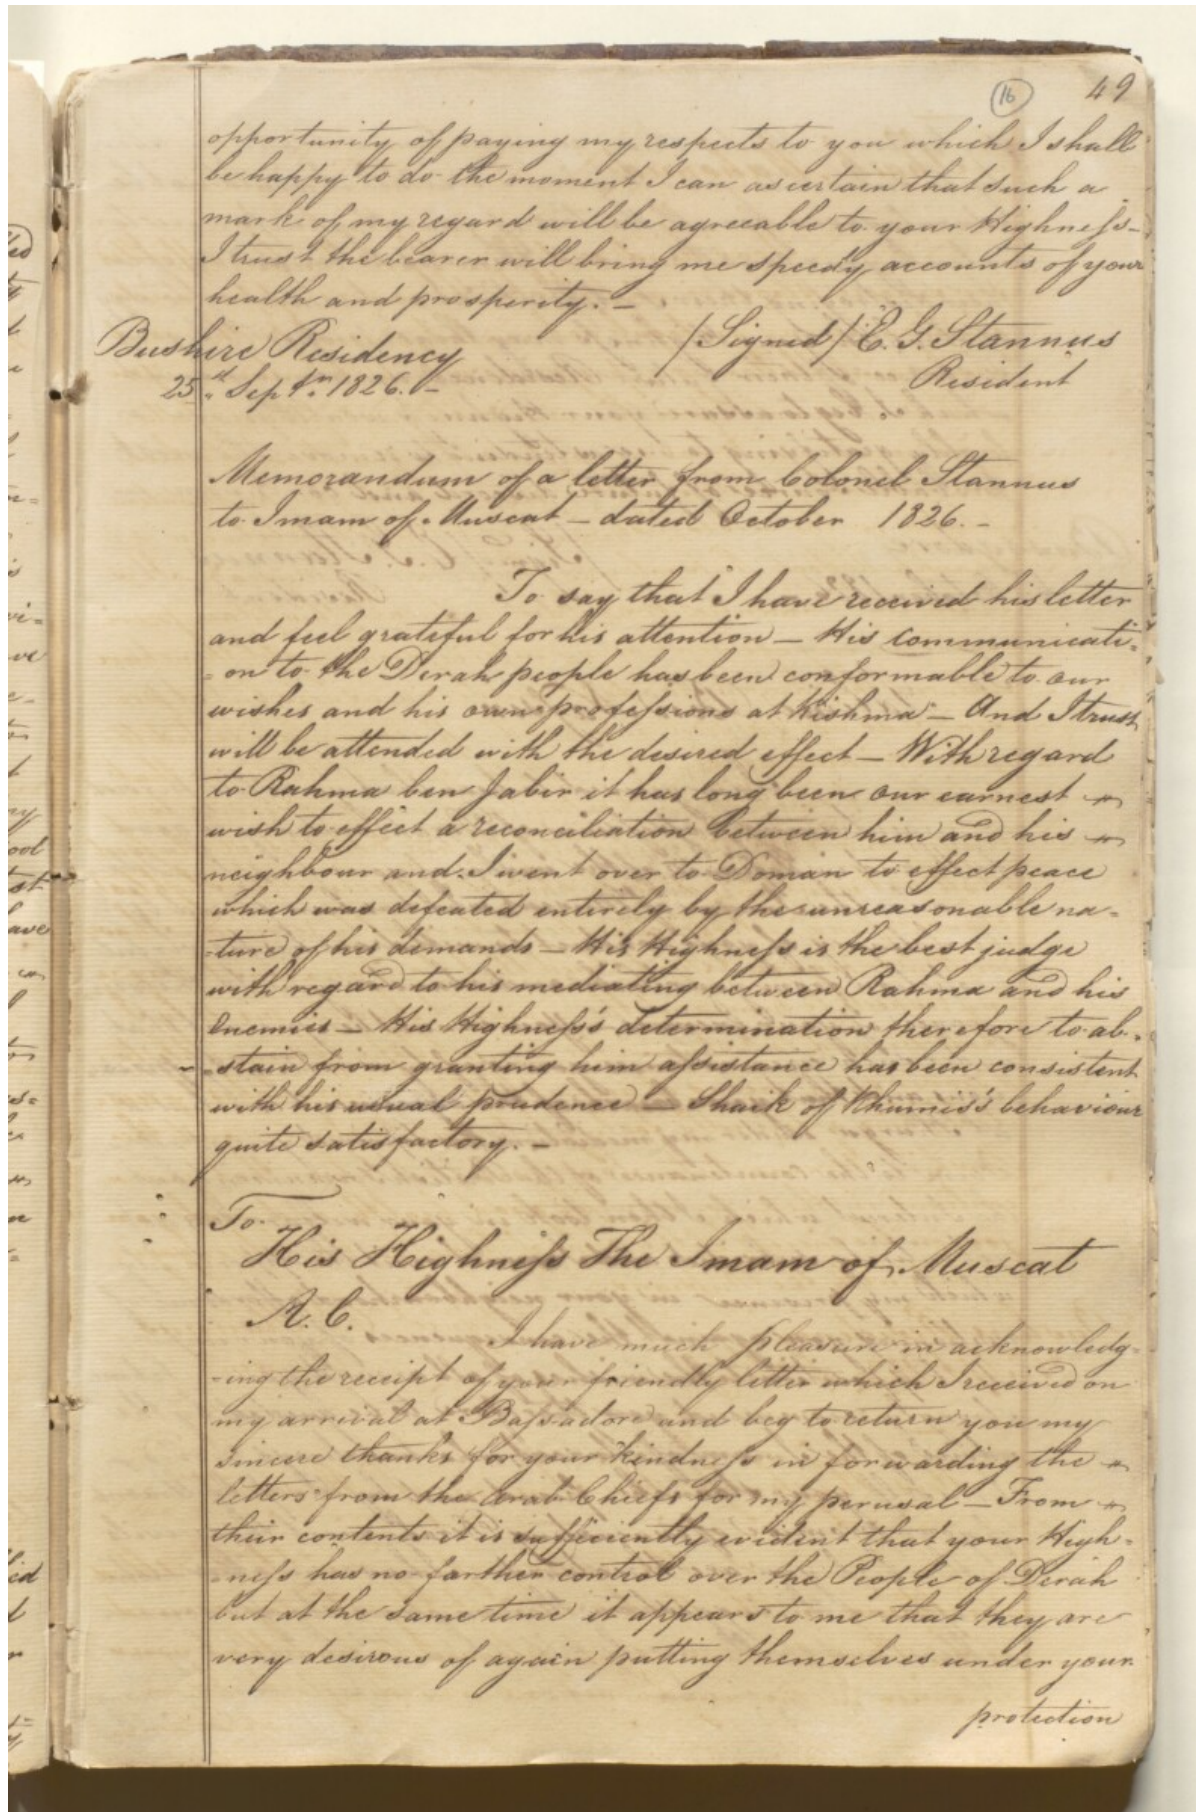 16 49
opportunity of paying my respects to you which I shall
be happy to do the moment I can ascertain that such a
mark of my regard will be agreeable to your Highneſs –
I trust the bearer will bring me speedy accounts of your
health and prosperity. –
Bushire Residency /Signed/ E. G. Stannus
25th Septr. 1826. – Resident
Memorandum of a letter from Colonel Stannus
to Imam of Muscat – dated October 1826. –
To say that I have received his letter
and feel grateful for his attention – His communicati-
-on to the Derah people has been conformable to our
wishes and his own profeſsions at Kishma – And I trust
will be attended with the desired effect – With regard
to Rahma ben Jabir it has long been our earnest
wish to effect a reconciliation between him and his
neighbour and I went over to Domän to effect peace
which was defeated entirely by the unreasonable na-
-ture of his demands – His Highneſs is the best judge
with regard to his mediating between Rahma and his
Enemies – His Highneſs's determination therefore to ab-
-stain from granting him aſsistance has been consistent
with his usual prudence – Shaik of Khamis's behaviour
quite satisfactory. –
To
His Highneſs The Imam of Muscat
A. C.
I have much pleasure in acknowledg-
-ing the receipt of your friendly letter which I received on
my arrival at Baſsadore and beg to return you my
sincere thanks for your kindneſs in forwarding the
letters from the Arab Chiefs for my perusal – From
their contents it is sufficiently evident that your High-
-neſs has no farther control over the People of Derah
but at the same time it appears to me that they are
very desirous of again putting themselves under your
protection